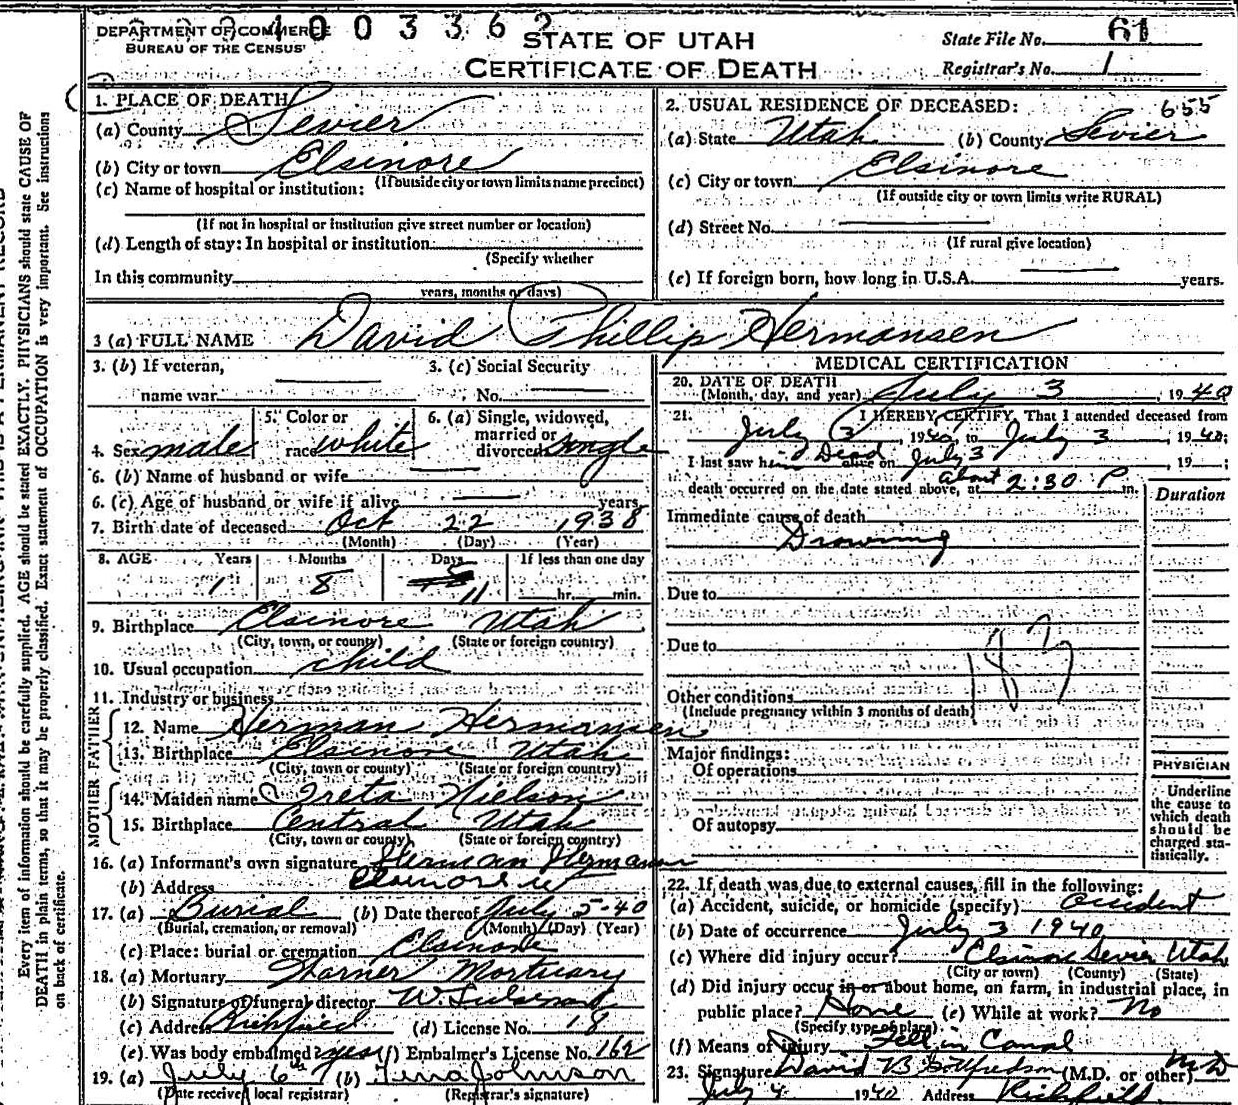 DEPARTMENT OF COMMERCE
BUREAU OF THE CENSUS
4003362
STATE OF UTAH
CERTIFICATE OF DEATH
State File No. 61
Registrar's No. 1
1. PLACE OF DEATH
(a) County Sevier
(b) City or town Elsinore
(If outside city or town limits name precinct)
(c) Name of hospital or institution:
(If not in hospital or institution give street number or location)
(d) Length of stay: In hospital or institution
(Specify whether
In this community
years, months or days)
2. USUAL RESIDENCE OF DECEASED: 655
(a) State Utah (b) County Sevier
(c) City or town Elsinore
(If outside city or town limits write RURAL)
(d) Street No.
(If rural give location)
(e) If foreign born, how long in U.S.A. years.
3 (a) FULL NAME David Phillip Hermansen
3. (b) If veteran,
name war
3. (c) Social Security
No.
4. Sex male
5. Color or
race white
6. (a) Single, widowed,
married or
divorced single
6. (b) Name of husband or wife
6. (c) Age of husband or wife if alive years
7. Birth date of deceased Oct 22 1938
(Month) (Day) (Year)
8. AGE Years Months Days If less than one day
1 8 11 hr. min.
9. Birthplace Elsinore Utah
(City, town, or county) (State or foreign country)
10. Usual occupation child
11. Industry or business
FATHER
12. Name Herman Hermansen
13. Birthplace Elsinore Utah
(City, town or county) (State or foreign country)
MOTHER
14. Maiden name Greta Nielson
15. Birthplace Central Utah
(City, town or county) (State or foreign country)
16. (a) Informant's own signature Herman Hermansen
(b) Address Elsinore Ut
17. (a) Burial (b) Date thereof July 5-40
(Burial, cremation, or removal) (Month) (Day) (Year)
(c) Place: burial or cremation Elsinore
18. (a) Mortuary Warner Mortuary
(b) Signature of funeral director W.
(c) Address Richfield (d) License No. 18
(e) Was body embalmed? yes (f) Embalmer's License No. 162
19. (a) July 6th (b) Tena Johnson
(Date received local registrar) (Registrar's signature)
MEDICAL CERTIFICATION
20. DATE OF DEATH
(Month, day, and year) July 3, 1940
21. I HEREBY CERTIFY, That I attended deceased from
July 3, 1940, to July 3, 1940;
I last saw him Dead alive on July 3, 19 ;
death occurred on the date stated above, at about 2:30 P m.
Duration
Immediate cause of death
Drowning
Due to
Due to
187
Other conditions
(Include pregnancy within 3 months of death)
Major findings:
Of operations
Of autopsy
PHYSICIAN
Underline
the cause to
which death
should be
charged sta-
tistically.
22. If death was due to external causes, fill in the following:
(a) Accident, suicide, or homicide (specify) Accident
(b) Date of occurrence July 3 1940
(c) Where did injury occur? Elsinore Sevier Utah
(City or town) (County) (State)
(d) Did injury occur in or about home, on farm, in industrial place, in
public place? Home (e) While at work? No
(Specify type of place)
(f) Means of injury Fell in Canal
23. Signature David B Gottfredson (M.D. or other) MD
July 4 1940 Address Richfield
Every item of information should be carefully supplied. AGE should be stated EXACTLY. PHYSICIANS should state CAUSE OF
DEATH in plain terms, so that it may be properly classified. Exact statement of OCCUPATION is very important. See instructions
on back of certificate.